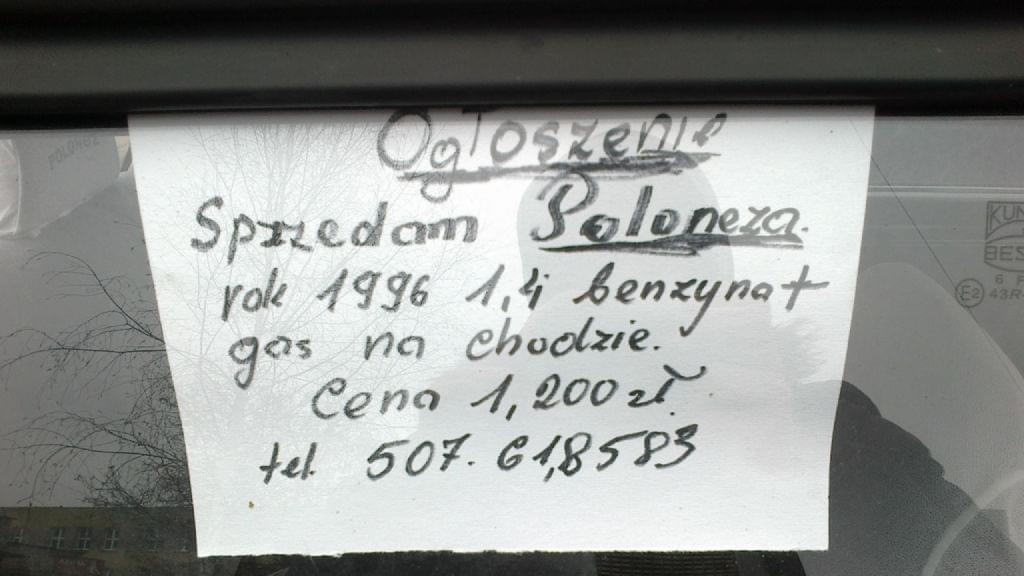 Ogłoszenie
Sprzedam Poloneza.
rok 1996 1,4 benzyna +
gas na chodzie.
Cena 1,200 zł.
tel. 507. 61,8583
POLONEZ
43R